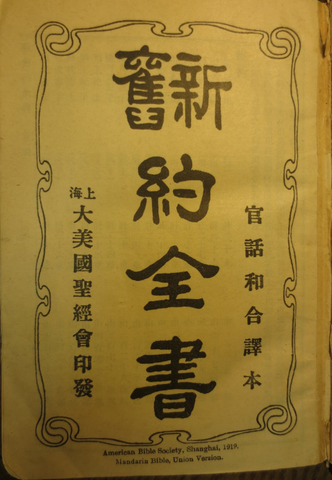 官話和合譯本
新舊約全書
上海大美國聖經會印發
American Bible Society, Shanghai, 1918.
Mandarin Bible, Union Version.